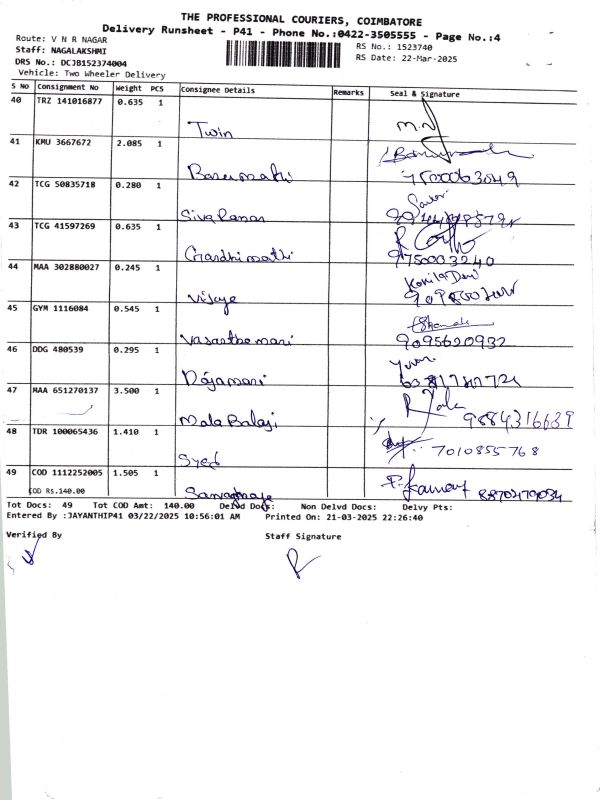 THE PROFESSIONAL COURIERS, COIMBATORE
Delivery Runsheet - P41 - Phone No.:0422-3505555 - Page No.:4
Route: V N R NAGAR
Staff: NAGALAKSHMI
RS No.: 1523740
DRS No.: DCJB152374004
RS Date: 22-Mar-2025
Vehicle: Two Wheeler Delivery
S No Consignment No Weight PCS Consignee Details Remarks Seal & Signature
40 TRZ 141016877 0.635 1
Twin
41 KMU 3667672 2.085 1
42 TCG 50835718 0.280 1
43 TCG 41597269 0.635 1
Gandhimathi 9750003240
44 MAA 302880027 0.245 1
Vijaya
45 GYM 1116084 0.545 1
9095620932
46 DDG 480539 0.295 1
47 MAA 651270137 3.500 1
Mala Balaji 9884316639
48 TDR 100065436 1.410 1
Syed 7010855768
49 COD 1112252005 1.505 1
COD Rs.140.00
Tot Docs: 49 Tot COD Amt: 140.00 Delvd Docs: Non Delvd Docs: Delvy Pts:
Entered By :JAYANTHIP41 03/22/2025 10:56:01 AM Printed On: 21-03-2025 22:26:40
Verified By Staff Signature